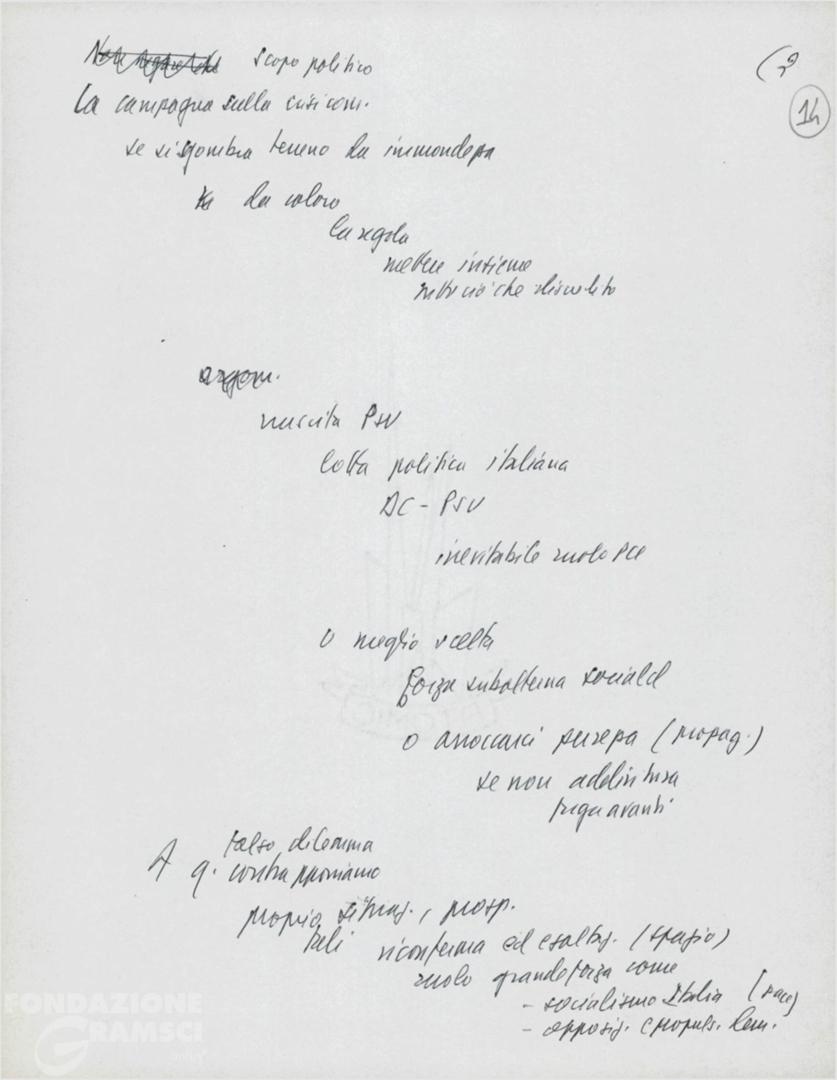 scopo politico
(2
14
La campagna sulla crisi com.
se si sgombra terreno da immondezza
da coloro
la regola
mettere insieme
tutto ciò che
argom.
nascita PSU
lotta politica italiana
DC - PSU
inevitabile ruolo PCI
o meglio scelta
forza subalterna sociald
o arroccarci purezza (propag.)
se non addirittura
fuga avanti
falso dilemma
A q. contrapponiamo
proprio situaz., prosp.
tali
riconferma ed esaltaz. (spazio)
ruolo grande forza come
- socialismo Italia (pace)
- opposiz. e propuls. dem.
FONDAZIONE
GRAMSCI